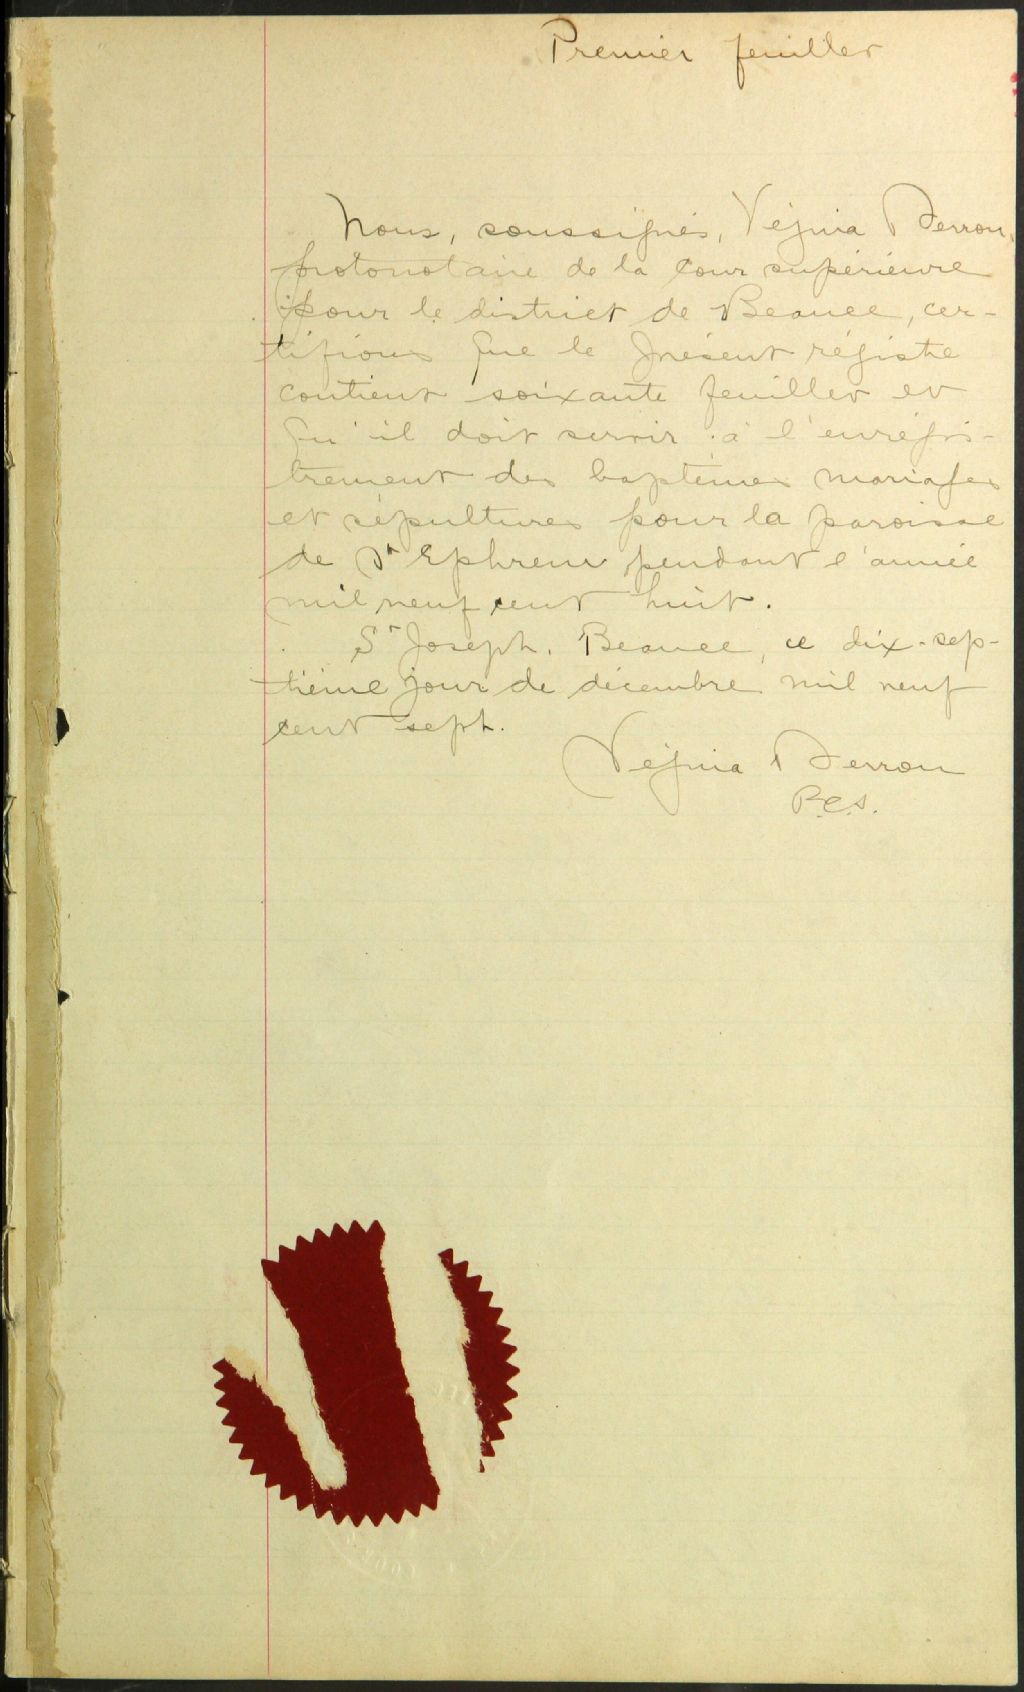 Premier feuillet
Nous, soussignés, Véjina Perron,
protonotaire de la Cour supérieure
pour le district de Beauce, cer-
tifions que le présent régistre
contient soixante feuillet et
qu'il doit servir à l'enrégis-
trement des baptêmes mariages
et sépultures pour la paroisse
de St Ephrem pendant l'année
mil neuf cent huit.
St Joseph, Beauce, ce dix-sep-
tième jour de décembre mil neuf
cent sept.
Véjina Perron
P.C.S.